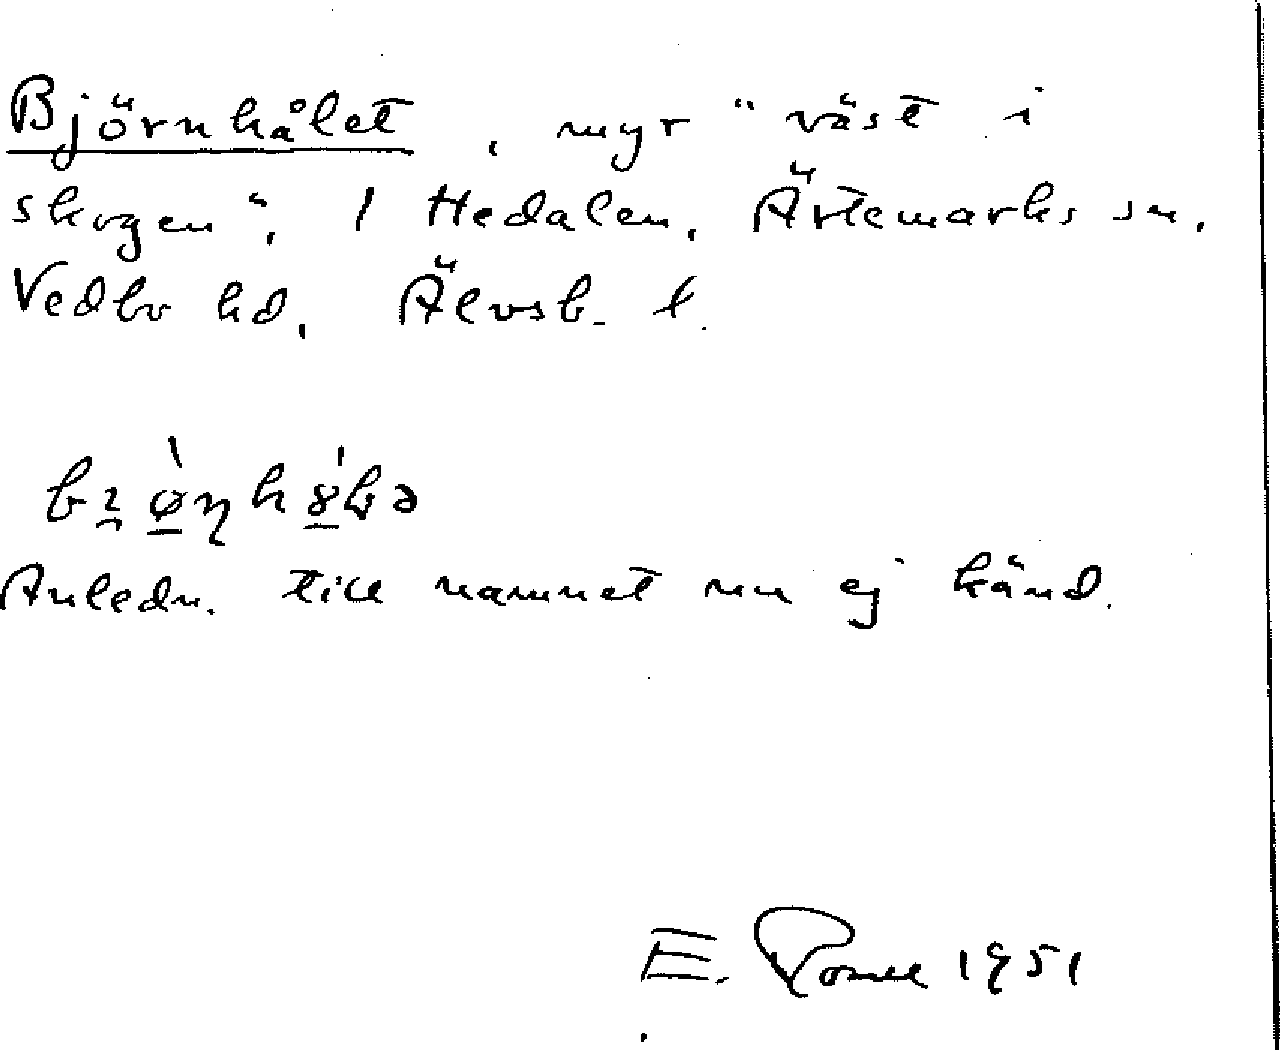 Björnhålet, myr "väst i
skogen", 1 Hedalen, Ärtemarks sn,
Vedbo hd, Älvsb. l.
Anledn. till namnet nu ej känd.
E. 1951